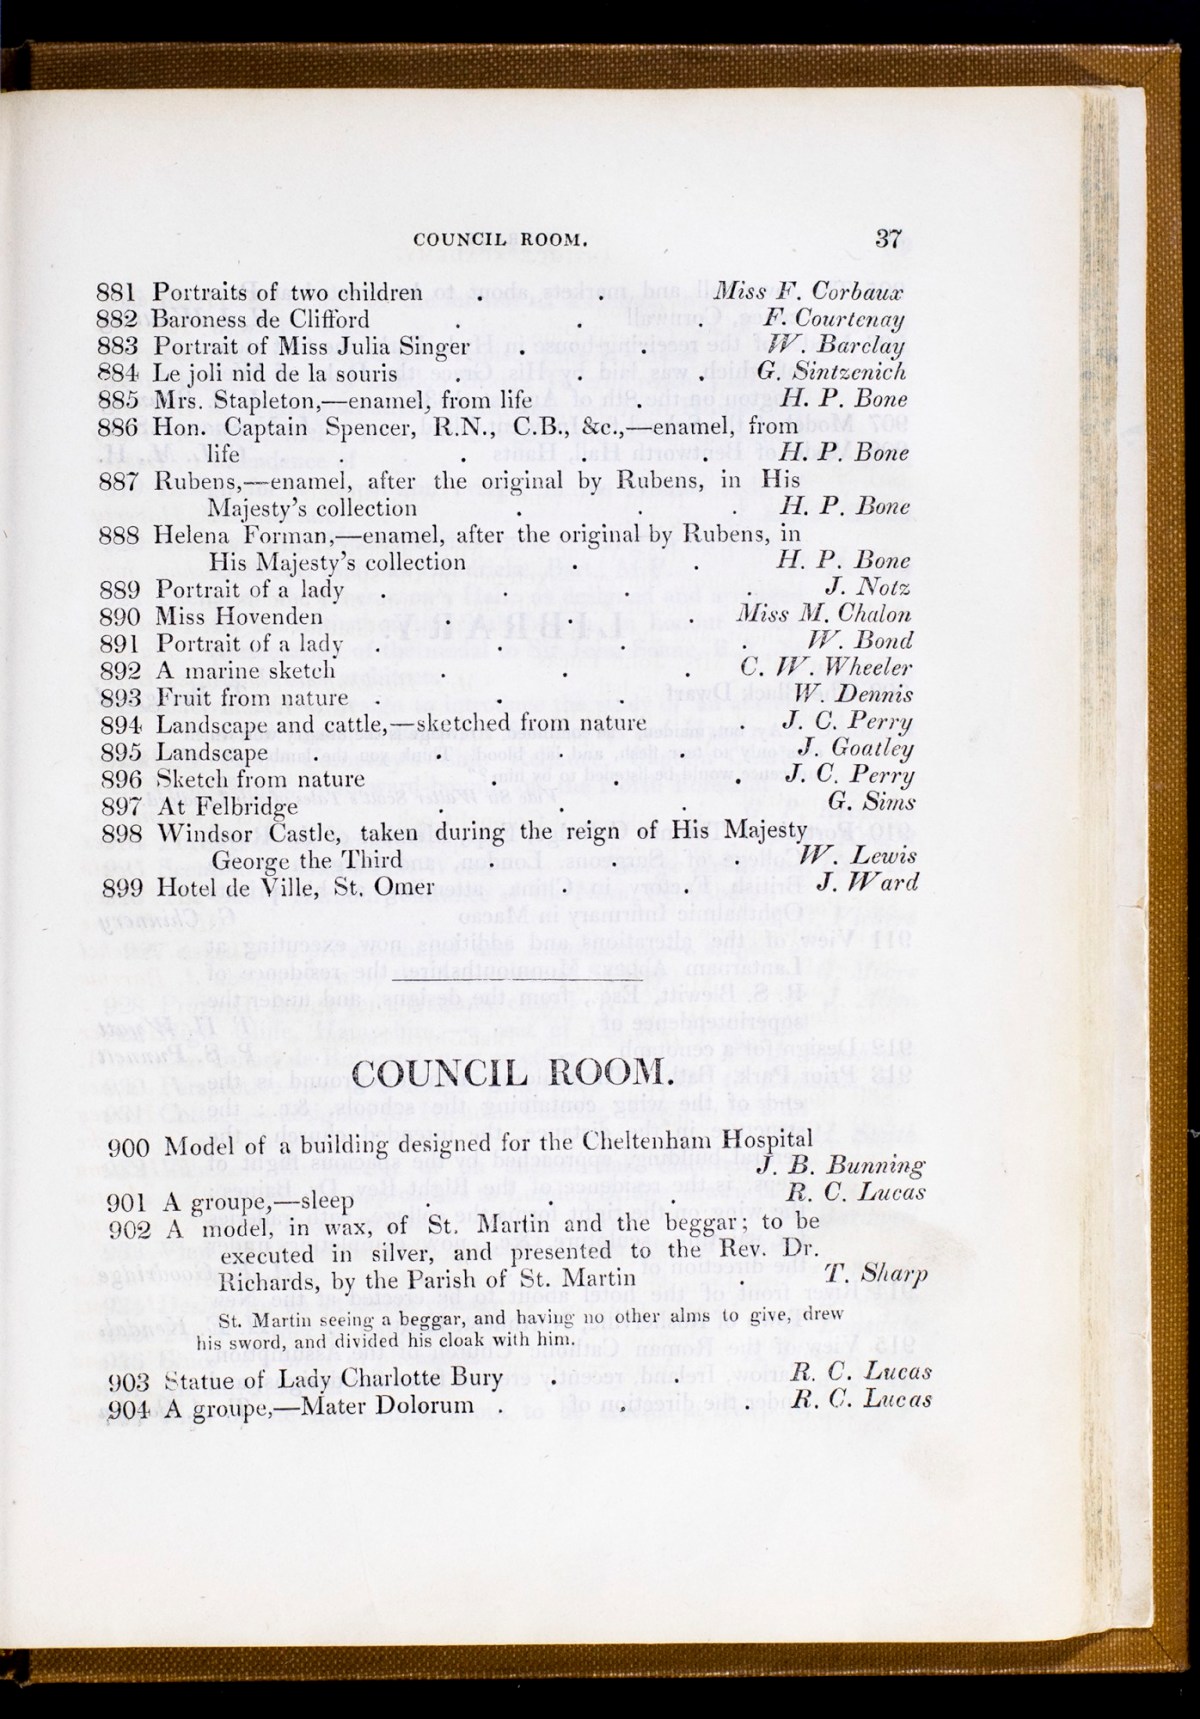 COUNCIL ROOM. 37
881 Portraits of two children . . Miss F. Corbaux
882 Baroness de Clifford . . . F. Courtenay
883 Portrait of Miss Julia Singer . . W. Barclay
884 Le joli nid de la souris . . . G. Sintzenich
885 Mrs. Stapleton,—enamel, from life . . H. P. Bone
886 Hon. Captain Spencer, R.N., C.B., &c.,—enamel, from
life . . . . H. P. Bone
887 Rubens,—enamel, after the original by Rubens, in His
Majesty's collection . . . H. P. Bone
888 Helena Forman,—enamel, after the original by Rubens, in
His Majesty's collection . . H. P. Bone
889 Portrait of a lady . . . . J. Notz
890 Miss Hovenden . . . Miss M. Chalon
891 Portrait of a lady . . . W. Bond
892 A marine sketch . . . C. W. Wheeler
893 Fruit from nature . . W. Dennis
894 Landscape and cattle,—sketched from nature . J. C. Perry
895 Landscape . . . . J. Goatley
896 Sketch from nature . . . J. C. Perry
897 At Felbridge . . . G. Sims
898 Windsor Castle, taken during the reign of His Majesty
George the Third . . . W. Lewis
899 Hotel de Ville, St. Omer . . J. Ward
COUNCIL ROOM.
900 Model of a building designed for the Cheltenham Hospital
J. B. Bunning
901 A groupe,—sleep . . . R. C. Lucas
902 A model, in wax, of St. Martin and the beggar; to be
executed in silver, and presented to the Rev. Dr.
Richards, by the Parish of St. Martin . T. Sharp
St. Martin seeing a beggar, and having no other alms to give, drew
his sword, and divided his cloak with him.
903 Statue of Lady Charlotte Bury . . R. C. Lucas
904 A groupe,—Mater Dolorum . . . R. C. Lucas